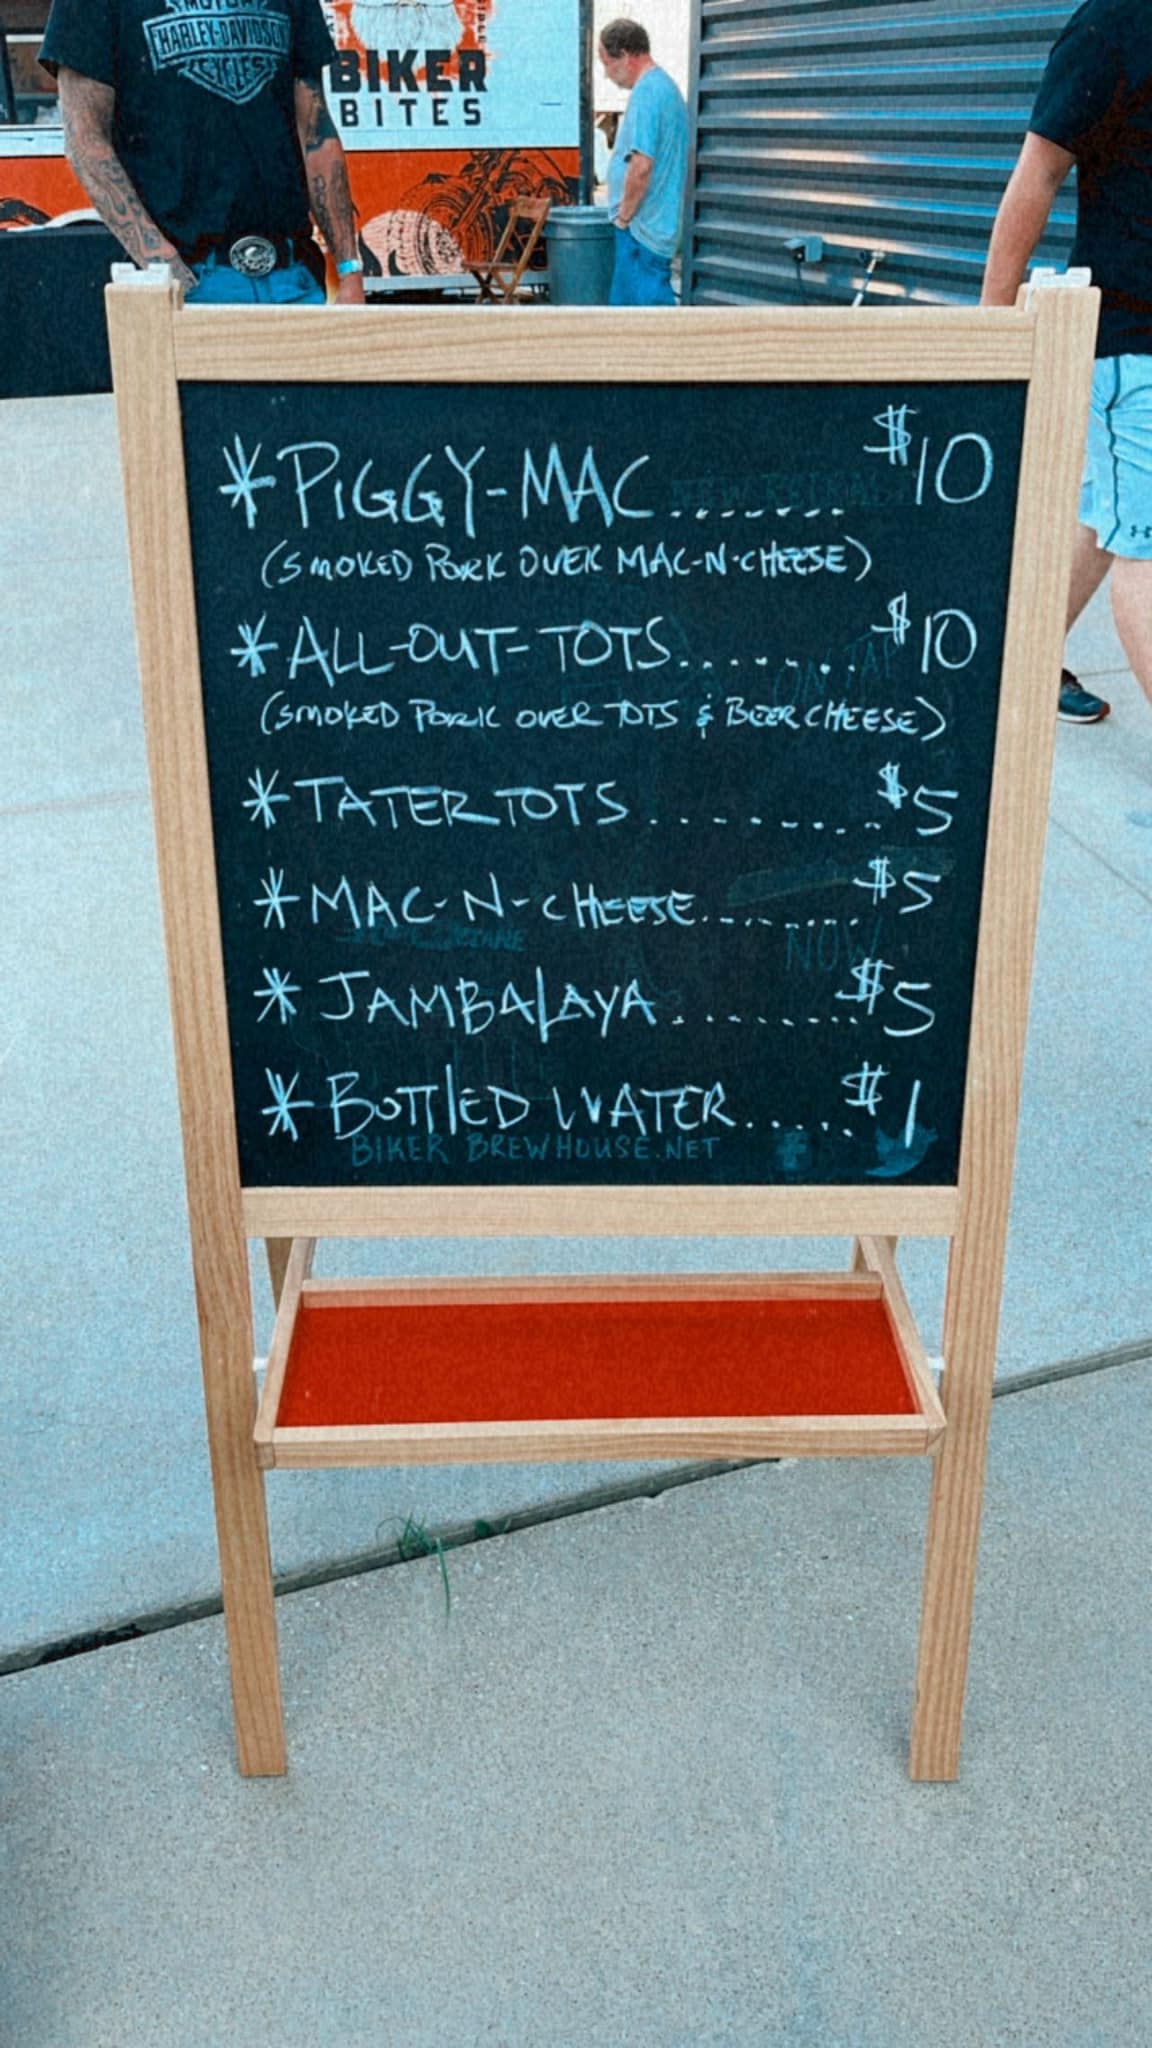 MOTOR
HARLEY-DAVIDSON
CYCLES
BIKER
BITES
*PIGGY-MAC....... $10
(SMOKED PORK OVER MAC-N-CHEESE)
*ALL-OUT-TOTS........ $10
(SMOKED PORK OVER TOTS & BEER CHEESE)
*TATER TOTS......... $5
*MAC-N-CHEESE........ $5
*JAMBALAYA......... $5
*BOTTLED WATER...... $1
BIKER BREWHOUSE.NET
ON TAP
NOW